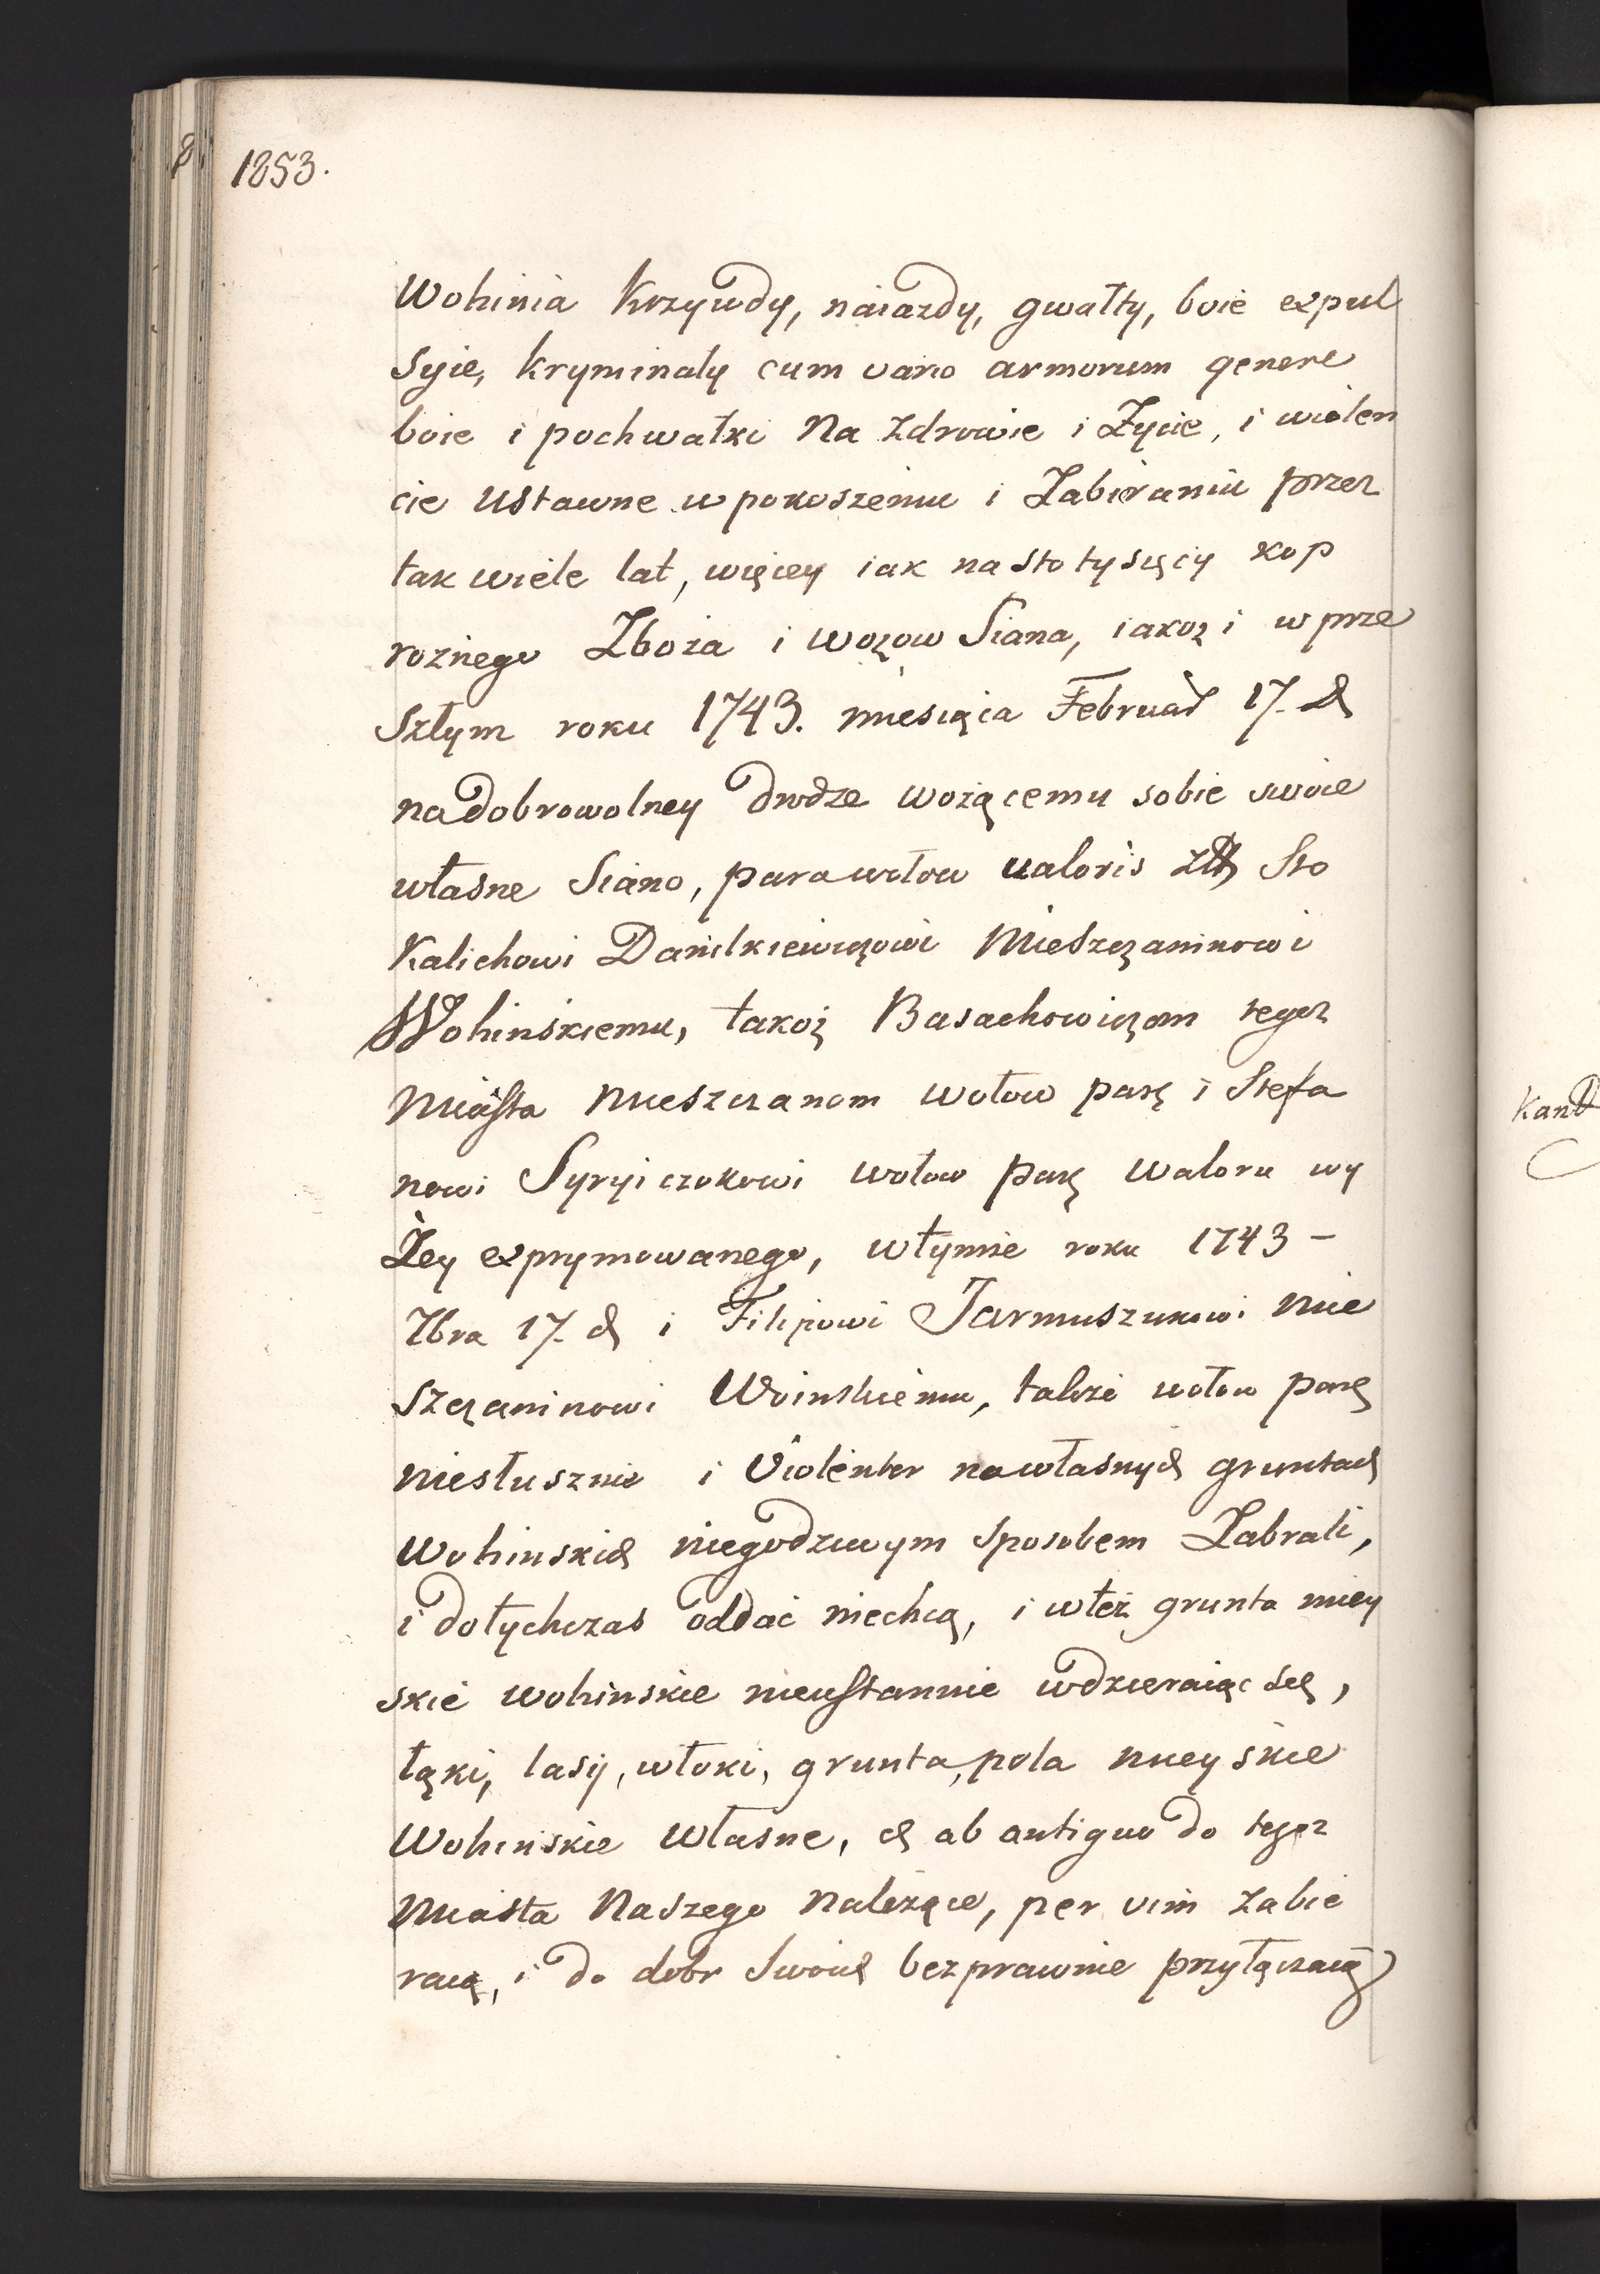 1853.
Wohinia Krzywdy, naiazdy, gwałty, boie expul
syie, kryminały cum vario armorum genere
boie i pochwałki na zdrowie i Życie, i wiolen
cie ustawne w pokoszeniu i Zabieraniu przez
tak wiele lat, więcey iak na sto tysięcy kop
rożnego Zboża i wozow Siana, iakoż i w prze
szłym roku 1743. miesiąca Februar 17. d
na dobrowolney drodze wożącemu sobie swoie
własne Siano, para wołow valoris zł Sto
Kalichowi Danilkiewiczowi Mieszczaninowi
Wohinskiemu, takoż Basachowiczom tegoz
Miasta Mieszczanom wołow parę i Stefa
nowi Syryiczukowi wołow parę waloru wy
Żey exprymowanego, w tymże roku 1743 –
7bra 17. d i Filipowi Jarmuszukowi Mie
szczaninowi Woinskiemu, także wołow parę
niesłusznie i Violenter na własnych gruntach
Wohinskich niegodziwym sposobem Zabrali,
i dotychczas oddać niechcą, i w też grunta miey
skie wohinskie nieustannie wdzieraiąc się,
łąki, lasy, włoki, grunta, pola mieyskie
Wohinskie własne, et ab antiquo do tegoz
Miasta Naszego Należące, per vim zabie
raią, i do dobr Swoich bezprawnie przyłączaią
Kand